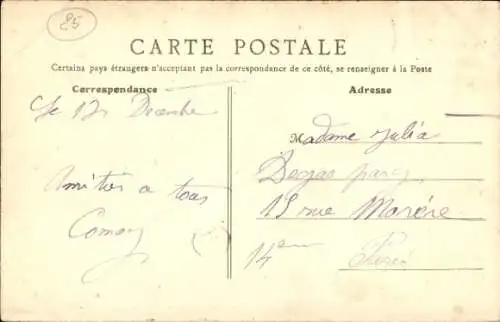 85
CARTE POSTALE
Certains pays étrangers n'acceptant pas la correspondance de ce côté, se renseigner à la Poste
Correspondance
Le 12 Decembre
Amitiés a tous
Adresse
Madame Julia
15 rue
14ème Paris